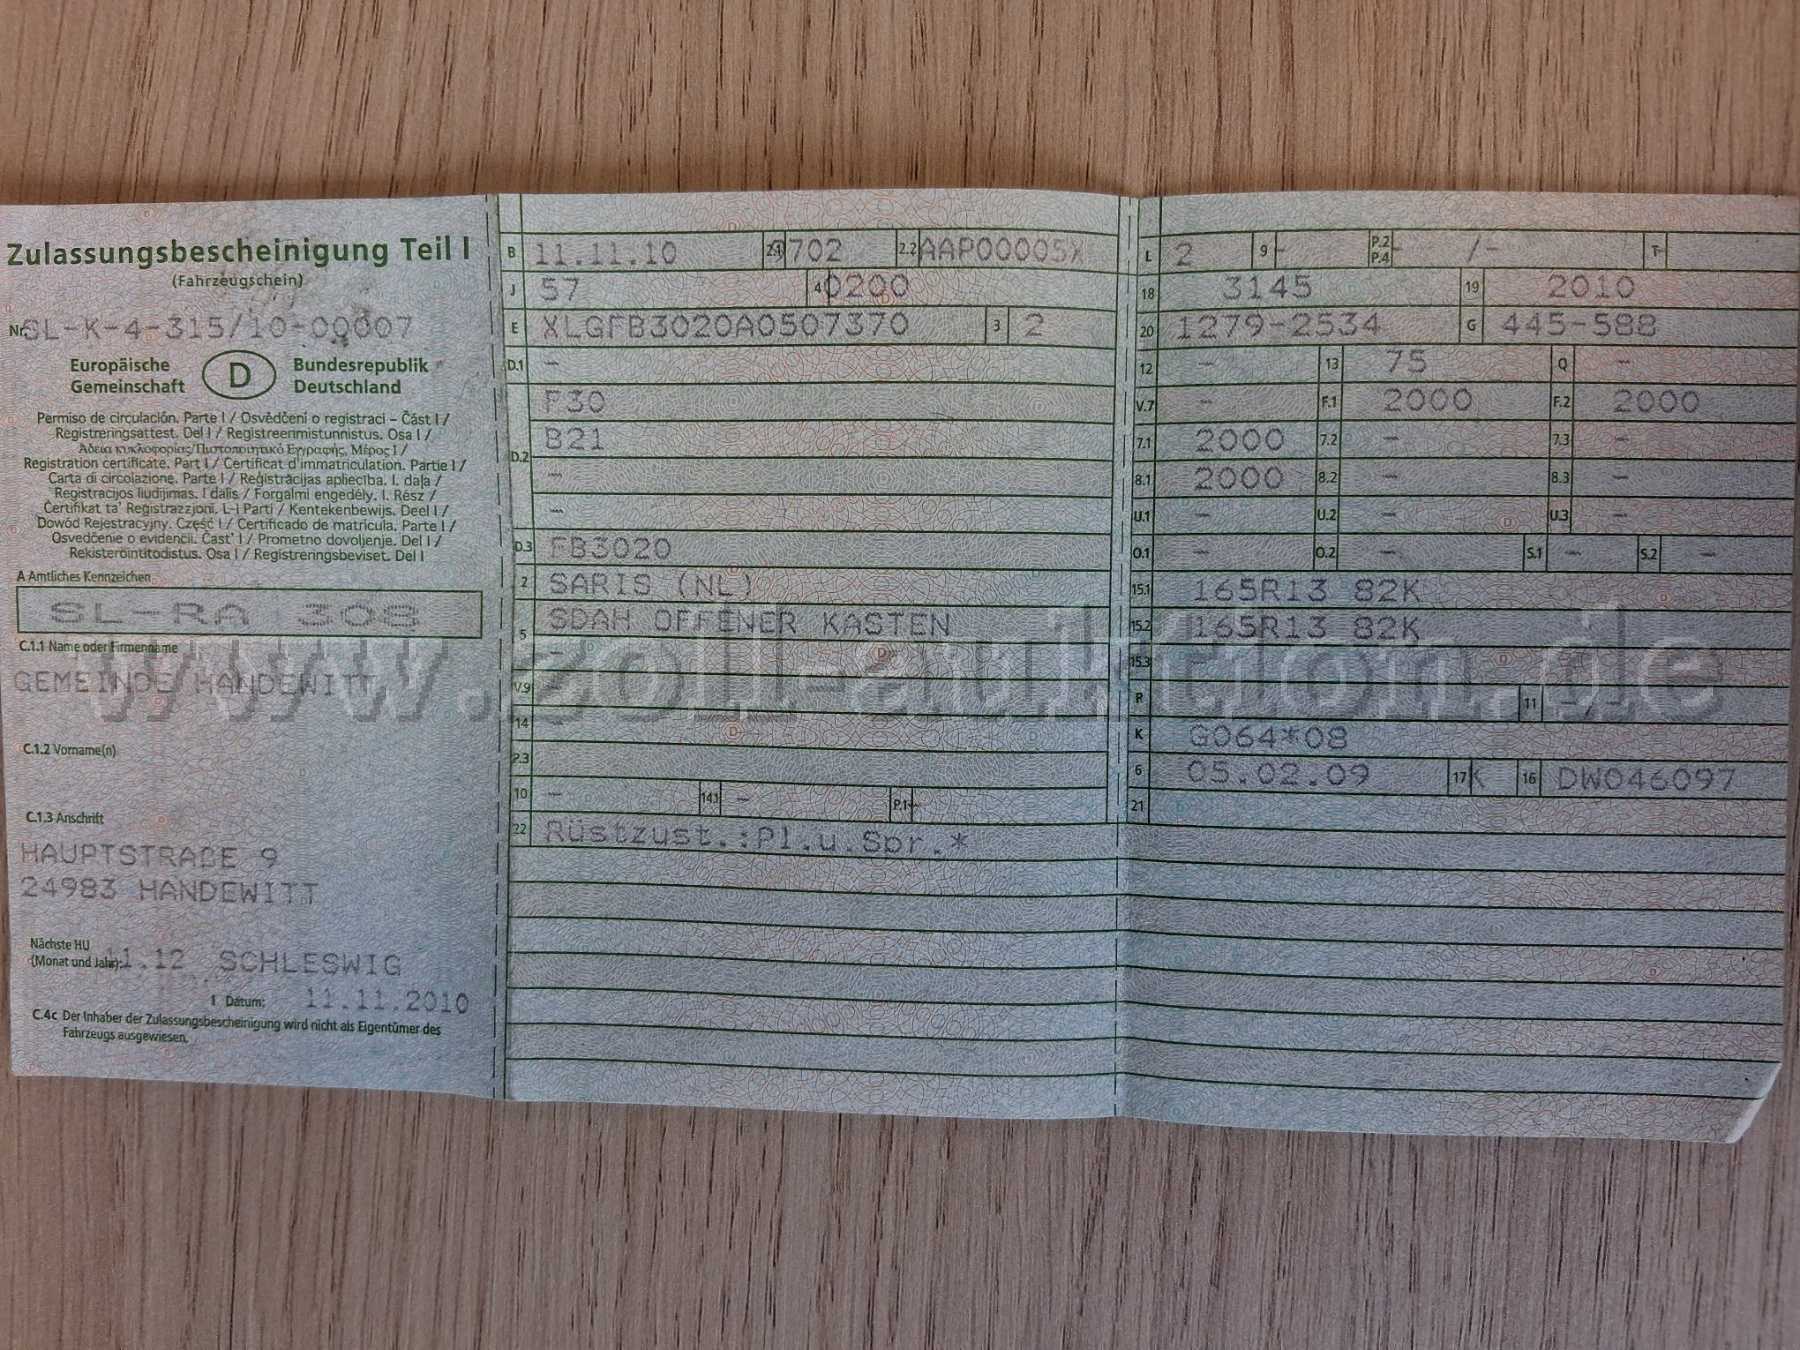 Zulassungsbescheinigung Teil I
(Fahrzeugschein)
Nr. SL-K-4-315/10-00007
Europäische Gemeinschaft D Bundesrepublik Deutschland
Permiso de circulación. Parte I / Osvědčení o registraci – Část I /
Registreringsattest. Del I / Registreerimistunnistus. Osa I /
Άδεια κυκλοφορίας/Πιστοποιητικό Εγγραφής, Μέρος I /
Registration certificate. Part I / Certificat d'immatriculation. Partie I /
Carta di circolazione. Parte I / Reģistrācijas apliecība. I. daļa /
Registracijos liudijimas. I dalis / Forgalmi engedély. I. Rész /
Ċertifikat ta' Reġistrazzjoni. L-I Parti / Kentekenbewijs. Deel I /
Dowód Rejestracyjny. Część I / Certificado de matrícula. Parte I /
Osvedčenie o evidencii. Časť I / Prometno dovoljenje. Del I /
Rekisteröintitodistus. Osa I / Registreringsbeviset. Del I
A Amtliches Kennzeichen
SL-RA 308
C.1.1 Name oder Firmenname
GEMEINDE HANDEWITT
C.1.2 Vorname(n)
C.1.3 Anschrift
HAUPTSTRAßE 9
24983 HANDEWITT
Nächste HU
(Monat und Jahr): 11.12 SCHLESWIG
I Datum: 11.11.2010
C.4c Der Inhaber der Zulassungsbescheinigung wird nicht als Eigentümer des
Fahrzeugs ausgewiesen.
B 11.11.10 2.1 702 2.2 AAP00005X
J 57 4 0200
E XLGFB3020A0507370 3 2
D.1 -
F30
D.2 B21
-
-
D.3 FB3020
2 SARIS (NL)
5 SDAH OFFENER KASTEN
-
V.9
14
P.3
10 - 14.1 - P.1 -
22 Rüstzust.:Pl.u.Spr.*
L 2 9 - P.2 P.4 - /- T -
18 3145 19 2010
20 1279-2534 G 445-588
12 - 13 75 Q -
V.7 - F.1 2000 F.2 2000
7.1 2000 7.2 - 7.3 -
8.1 2000 8.2 - 8.3 -
U.1 - U.2 - U.3 -
O.1 - O.2 - S.1 - S.2 -
15.1 165R13 82K
15.2 165R13 82K
15.3
R 11 -/-
K G064*08
6 05.02.09 17 K 16 DW046097
21
www.zoll-auktion.de